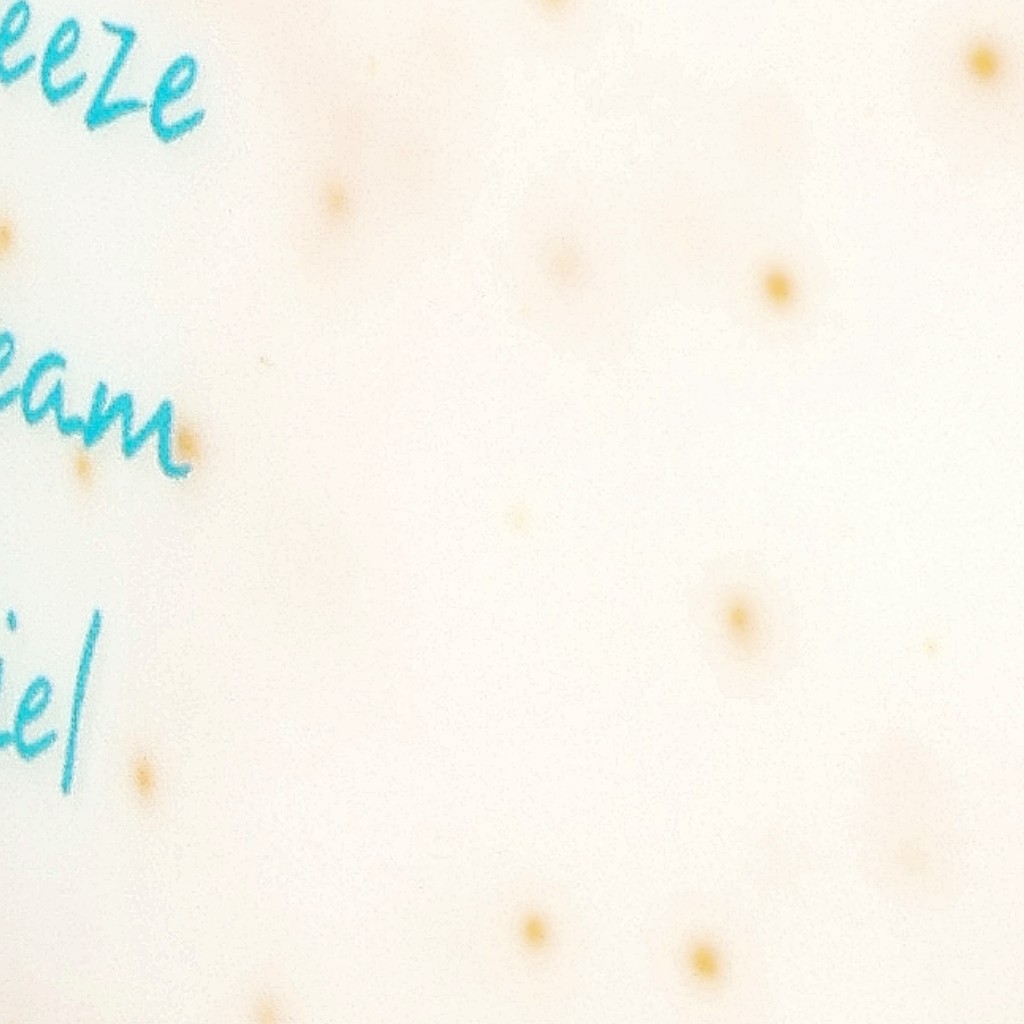 eeze
eam
iel